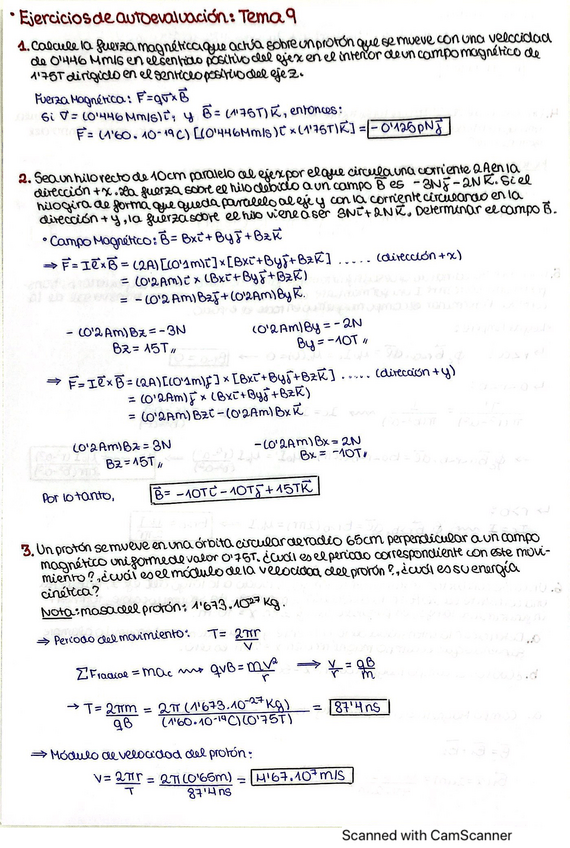 • Ejercicios de autoevaluación: Tema 9
1. Calcule la fuerza magnética que actúa sobre un protón que se mueve con una velocidad
de 0'446 Mm/s en el sentido positivo del eje x en el interior de un campo magnético de
1'75T dirigido en el sentido positivo del eje z.
Fuerza Magnética: F⃗=qv⃗×B⃗
Si v⃗ = (0'446Mm/s)i⃗, y B⃗ = (1'75T)k⃗, entonces:
F⃗ = (1'60.10-19C)[(0'446Mm/s)i⃗ × (1'75T)k⃗] = -0'125pNj⃗
2. Sea un hilo recto de 10cm paralelo al eje x por el que circula una corriente 2A en la
dirección +x. La fuerza sobre el hilo debido a un campo B⃗ es -3Nj⃗-2Nk⃗. Si el
hilo gira de forma que queda paralelo al eje y con la corriente circulando en la
dirección +y, la fuerza sobre el hilo viene a ser 3Ni⃗+2Nk⃗. Determinar el campo B⃗.
• Campo Magnético: B⃗= Bxi⃗+Byj⃗+Bzk⃗
⇒ F⃗= Il⃗×B⃗ = (2A)[(0'1m)i⃗]×[Bxi⃗+Byj⃗+Bzk⃗] ..... (dirección +x)
= (0'2Am)i⃗ × (Bxi⃗+Byj⃗+Bzk⃗)
= -(0'2Am)Bzj⃗+(0'2Am)Byk⃗.
-(0'2Am)Bz=-3N (0'2Am)By=-2N
Bz= 15T,, By= -10T,,
⇒ F⃗= Il⃗×B⃗ = (2A)[(0'1m)j⃗] × [Bxi⃗+Byj⃗+Bzk⃗] ..... (dirección +y)
= (0'2Am)j⃗ × (Bxi⃗+Byj⃗+Bzk⃗)
= (0'2Am)Bzi⃗-(0'2Am)Bxk⃗
(0'2Am)Bz=3N -(0'2Am)Bx=2N
Bz=15T,, Bx= -10T,,
Por lo tanto, B⃗= -10Ti⃗-10Tj⃗+15Tk⃗
3. Un protón se mueve en una órbita circular de radio 65cm perpendicular a un campo
magnético uniforme de valor 0'75T. ¿cuál es el periodo correspondiente con este movi-
miento?, ¿cuál es el módulo de la velocidad del protón?, ¿cuál es su energía
cinética?
Nota: masa del protón: 1'673.10²⁷Kg.
⇒ Período del movimiento: T= 2πr/v
ΣFradial = mac ⇝ qvB= mv²/r ⟹ v/r = qB/m
→ T= 2πm/qB = 2π(1'673.10⁻²⁷Kg)/(1'60.10⁻¹⁹C)(0'75T) = 87'4ns
⇒ Módulo de velocidad del protón:
v= 2πr/T = 2π(0'65m)/87'4ns = 4'67.10⁷m/s
Scanned with CamScanner